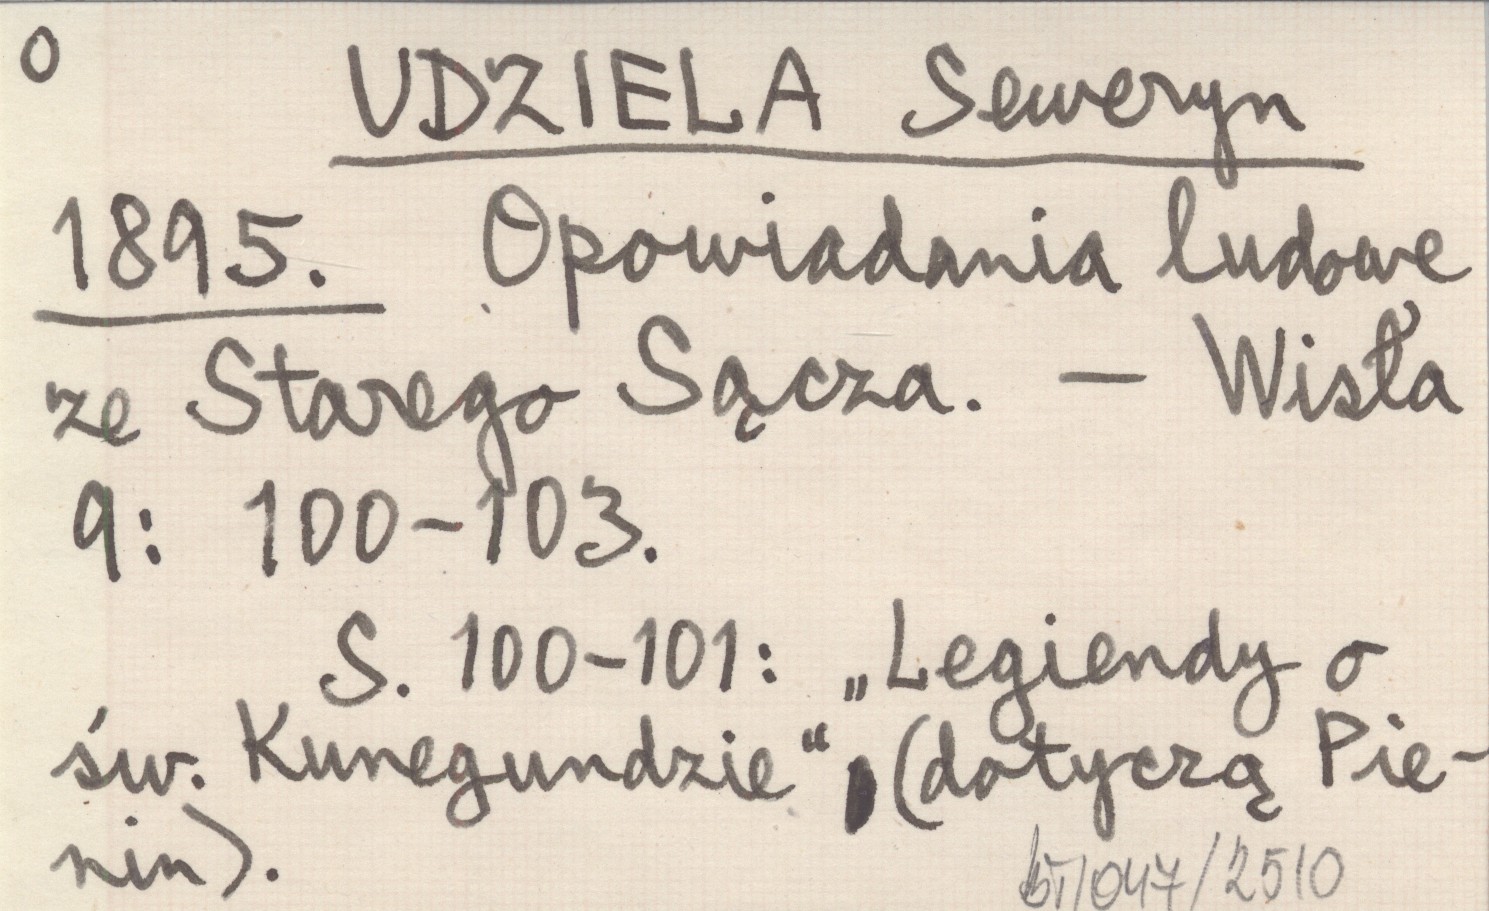 O
UDZIELA Seweryn
1895. Opowiadania ludowe
ze Starego Sącza. — Wisła
9: 100-103.
S. 100-101: „Legiendy o
św. Kunegundzie“, (dotyczą Pie-
nin).
/047/2510